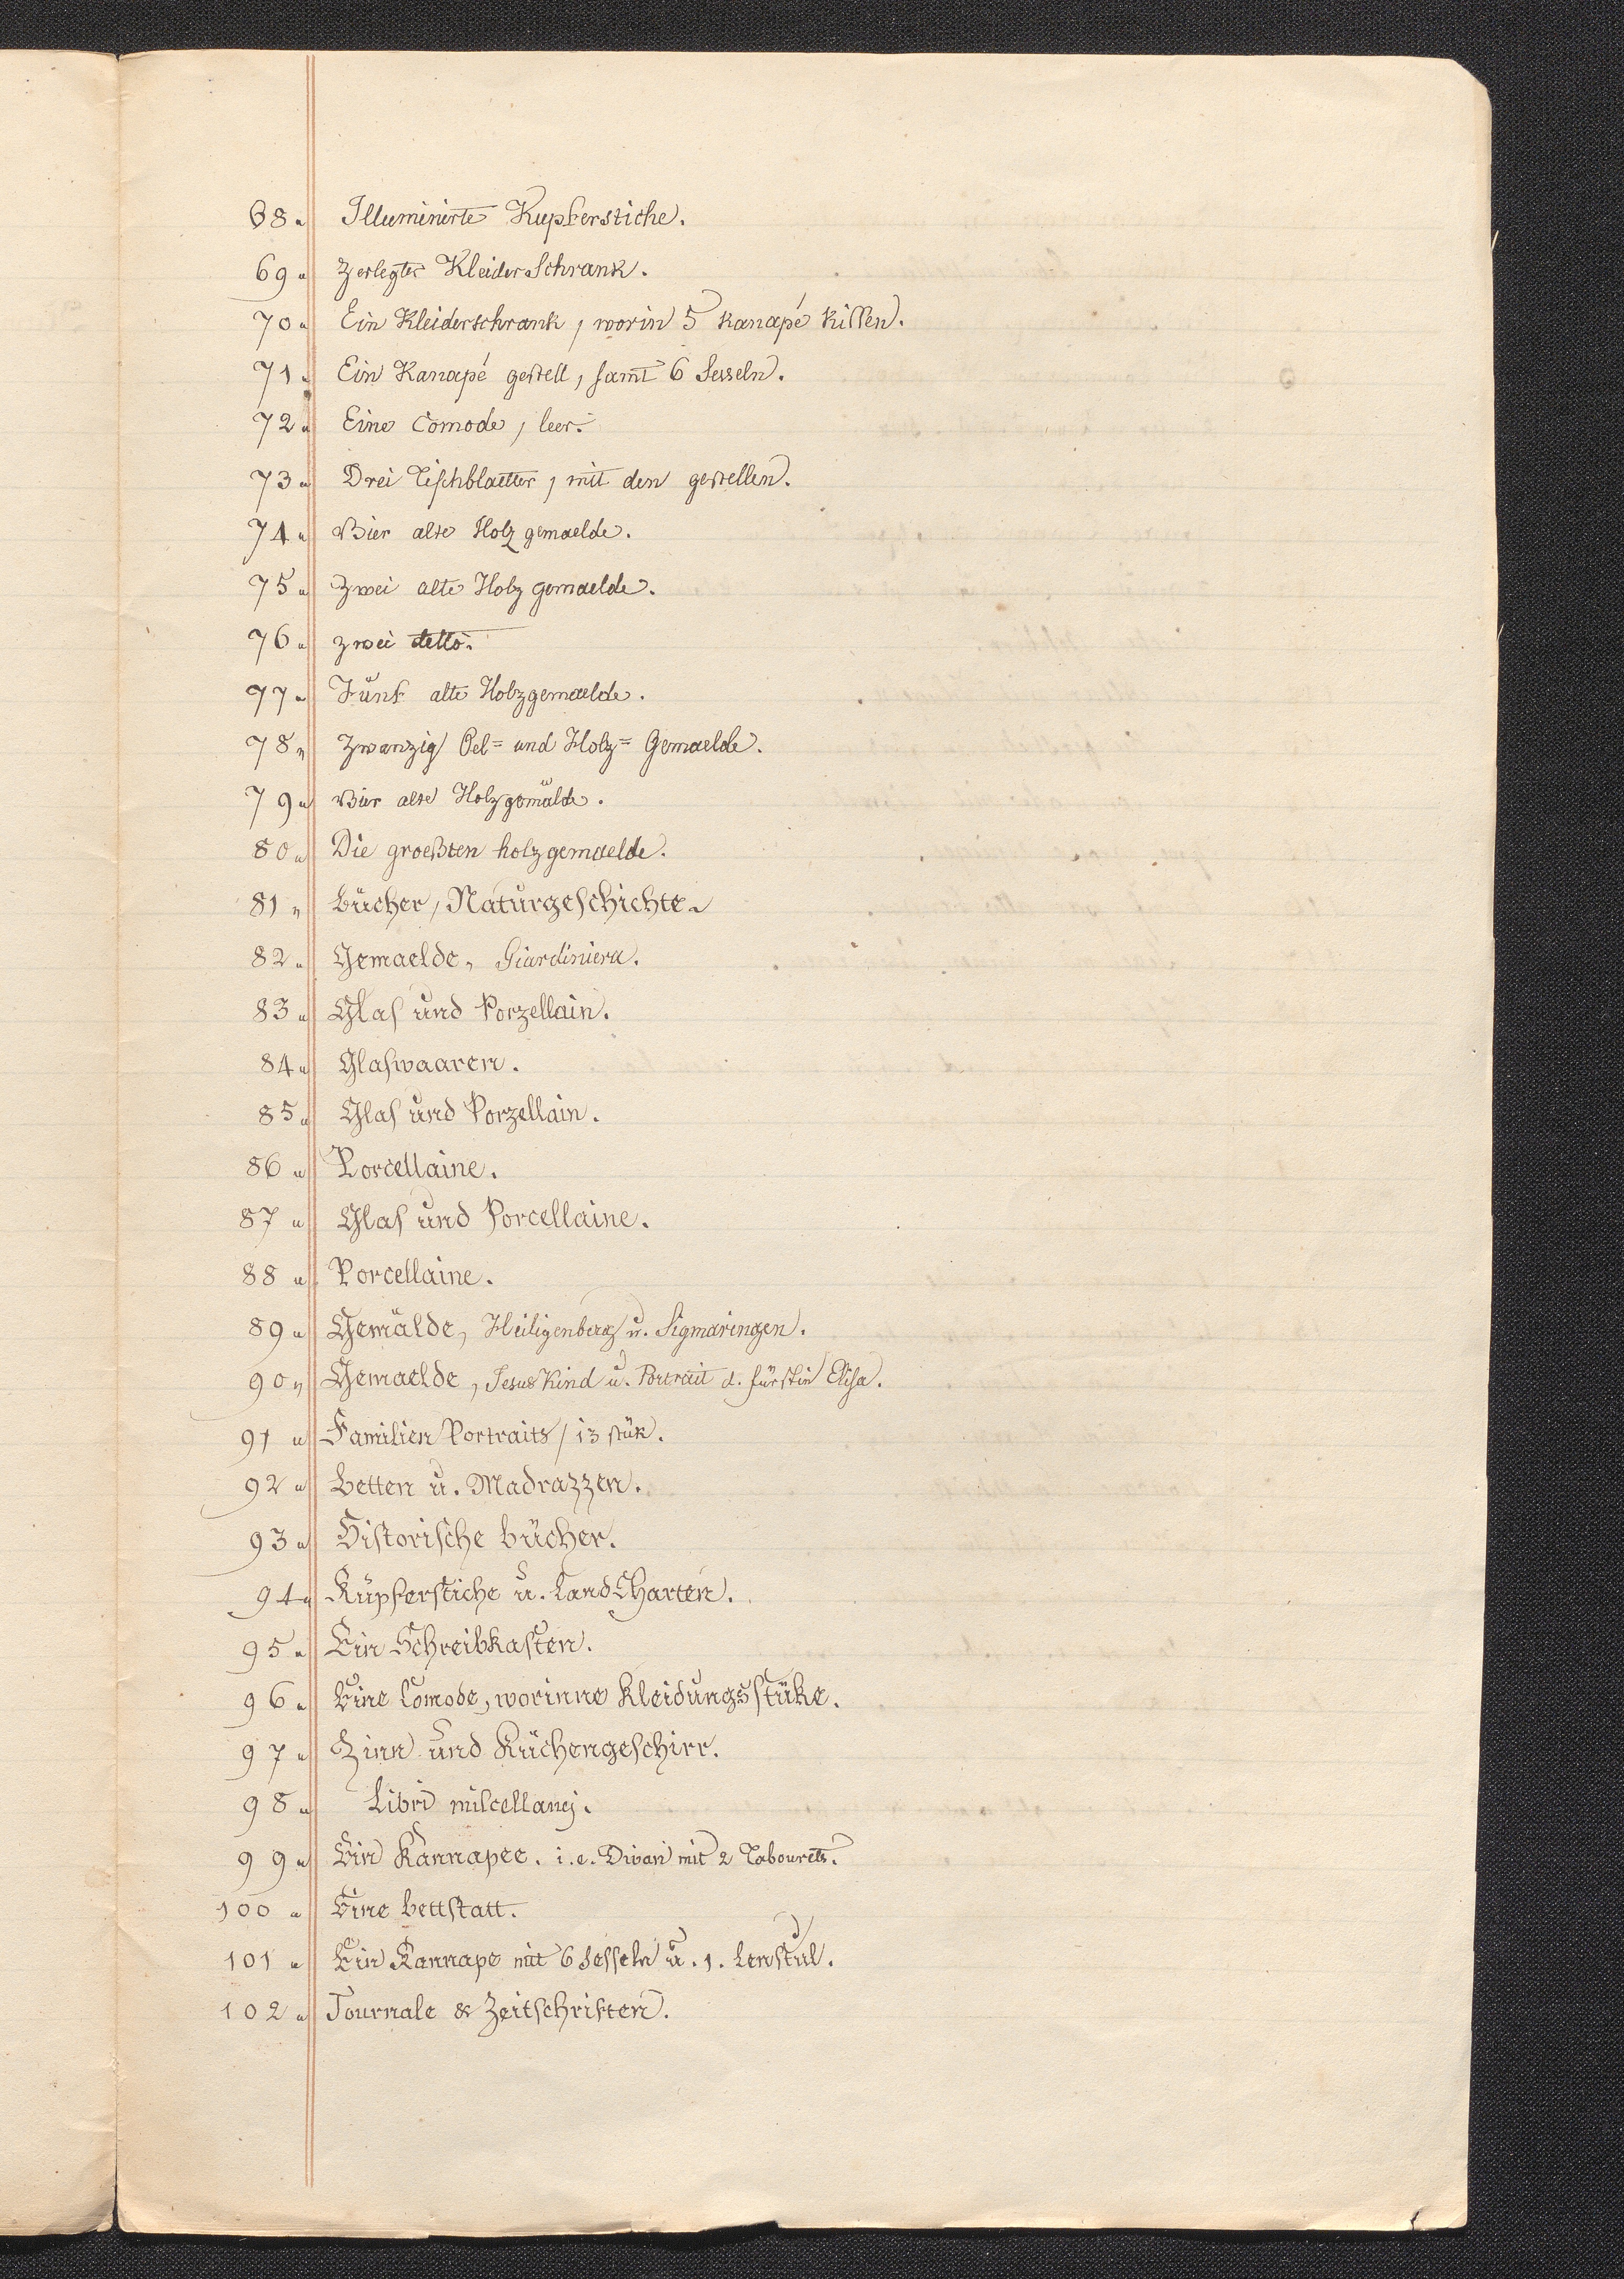 68. Illuminirte Kupferstiche.
69. Zerlegter Kleider Schrank.
70. Ein Kleiderschrank, worin 5 Kanapé Kißen.
71. Ein Kanapé gestell, samt 6 Sesseln.
72. Eine Comode, leer.
73. Drei Tischblaetter, mit den gestellen.
74. Vier alte Holz gemaelde.
75. Zwei alte Holz gemaelde.
76. zwei detto.
77. Fünf alte Holzgemaelde.
78. Zwanzig Oel= und Holz= Gemaelde.
79. Vier alte Holzgemälde.
80. Die groeßten holzgemaelde.
81. Bücher, Naturgeschichte.
82. Gemaelde, Giardiniera.
83. Glas und Porzellain.
84. Glaswaaren.
85. Glas und Porzellain.
86. Porcellaine.
87. Glas und Porcellaine.
88. Porcellaine.
89. Gemälde, Heiligenberg u. Sigmaringen.
90. Gemaelde, Jesus Kind u. Portrait d. fürstin Elisa.
91. Familien Portraits / 13 stük.
92. Betten u. Madrazzen.
93. Historische Bücher.
94. Kupferstiche u. Land Charten.
95. Ein Schreibkasten.
96. Eine Comode, worinne Kleidungsstüke.
97. Zinn und Küchengeschirr.
98. Libri miscellanej.
99. Ein Kannapee. i.e. Divan mit 2 Tabourets.
100. Eine Bettstatt.
101. Ein Kannape mit 6 Sesseln u. 1. Lenstul.
102. Journale & Zeitschriften.